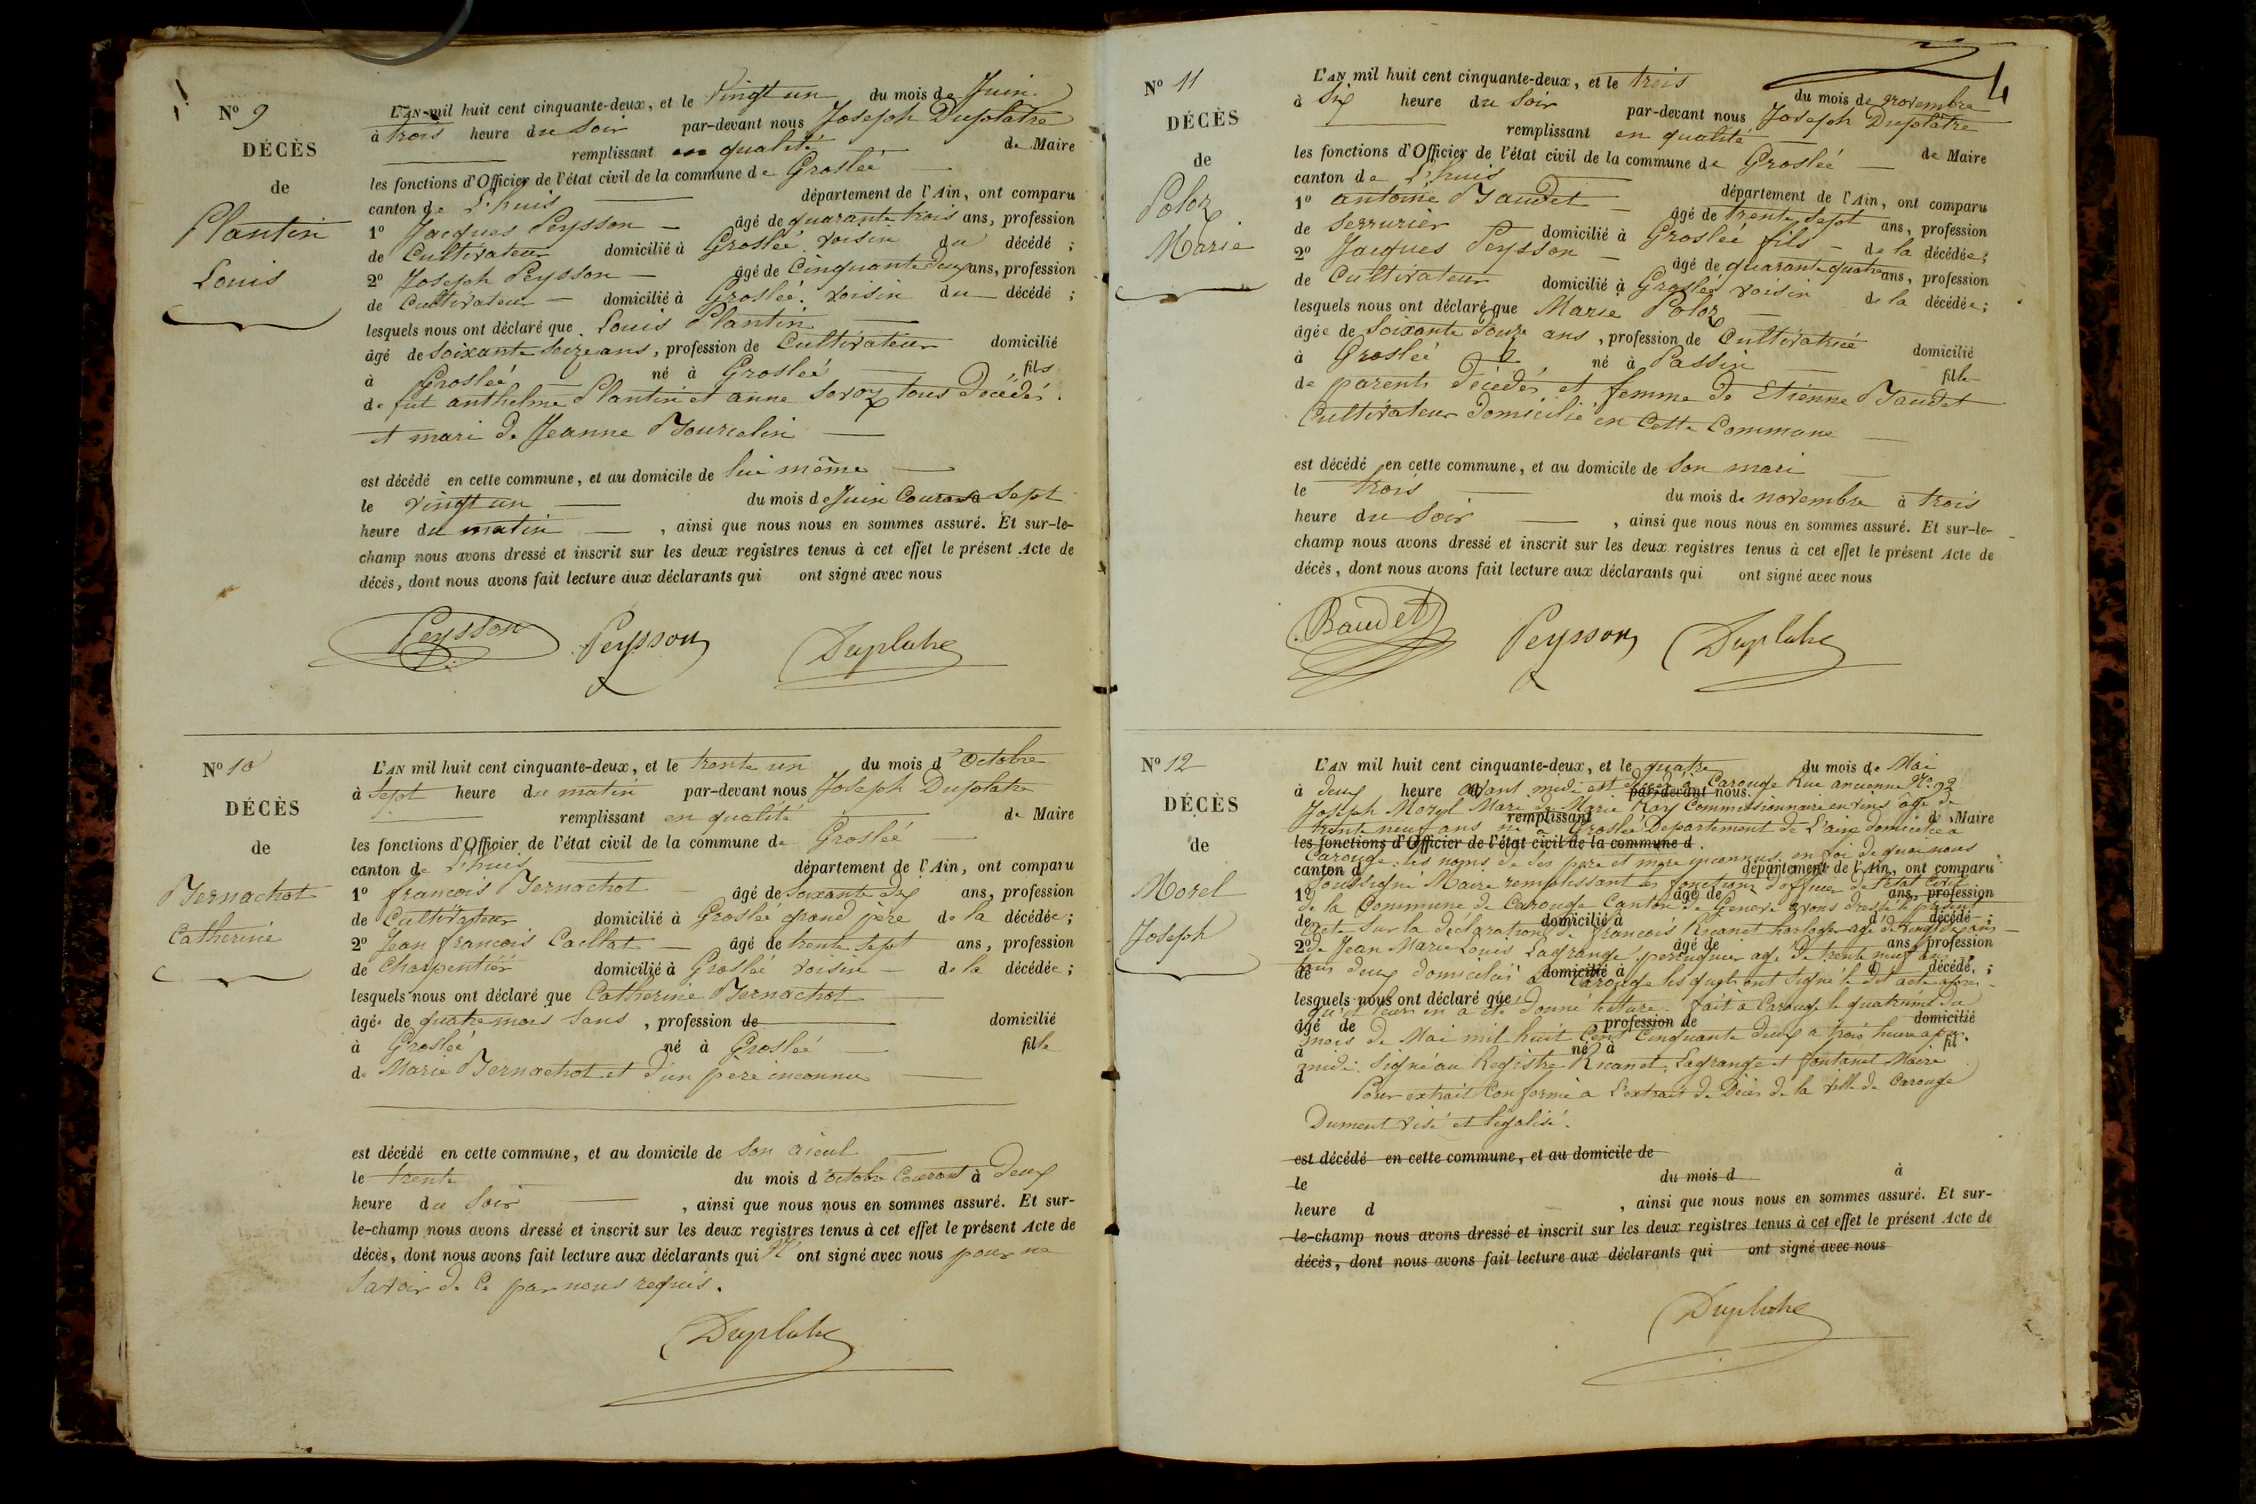 N° 9
DÉCÈS
de
Plantin
Louis
L'AN mil huit cent cinquante-deux, et le vingt un du mois de Juin
à trois heure du soir par-devant nous Joseph Duplatre
remplissant en qualité de Maire
les fonctions d'Officier de l'état civil de la commune de Groslée
canton de L'huis département de l'Ain, ont comparu
1° Jacques Peysson âgé de quarante trois ans, profession
de Cultivateur domicilié à Groslée voisin du décédé ;
2° Joseph Peysson âgé de Cinquante deux ans, profession
de Cultivateur domicilié à Groslée voisin du décédé ;
lesquels nous ont déclaré que Louis Plantin
âgé de soixante seize ans, profession de Cultivateur domicilié
à Groslée né à Groslée fils
de fut anthelme Plantin et anne Savoz tous Décédés
et mari de Jeanne Bourcelin
est décédé en cette commune, et au domicile de lui même
le vingt un du mois de Juin Courant à Sept
heure du matin, ainsi que nous nous en sommes assuré. Et sur-le-
champ nous avons dressé et inscrit sur les deux registres tenus à cet effet le présent Acte de
décès, dont nous avons fait lecture aux déclarants qui ont signé avec nous
Peysson Peysson Duplatre
N° 10
DÉCÈS
de
Bernachot
Catherine
L'AN mil huit cent cinquante-deux, et le trente un du mois d'Octobre
à Sept heure du matin par-devant nous Joseph Duplatre
remplissant en qualité de Maire
les fonctions d'Officier de l'état civil de la commune de Groslée
canton de L'huis département de l'Ain, ont comparu
1° francois Bernachot âgé de soixante dix ans, profession
de Cultivateur domicilié à Groslée grand père de la décédée ;
2° Jean francois Caillat âgé de trente sept ans, profession
de Charpentier domicilié à Groslée voisin de la décédée ;
lesquels nous ont déclaré que Catherine Bernachot
âgée de quatre mois sans, profession de domicilié
à Groslée né à Groslée fille
de Marie Bernachot et d'un pere inconnu
est décédé en cette commune, et au domicile de son aieul
le trente du mois d'octobre Courant à Deux
heure du Soir, ainsi que nous nous en sommes assuré. Et sur-
le-champ nous avons dressé et inscrit sur les deux registres tenus à cet effet le présent Acte de
décès, dont nous avons fait lecture aux déclarants qui N' ont signé avec nous pour ne
Savoir de Ce par nous requis.
Duplatre
4
N° 11
DÉCÈS
de
Poloz
Marie
L'AN mil huit cent cinquante-deux, et le trois du mois de novembre
à Six heure du Soir par-devant nous Joseph Duplatre
remplissant en qualité de Maire
les fonctions d'Officier de l'état civil de la commune de Groslée
canton de L'huis département de l'Ain, ont comparu
1° antoine Baudet âgé de trente sept ans, profession
de Serrurier domicilié à Groslée fils de la décédée ;
2° Jacques Peysson âgé de quarante quatre ans, profession
de Cultivateur domicilié à Groslée voisin de la décédée ;
lesquels nous ont déclaré que Marie Poloz
âgée de Soixante Douze ans, profession de Cultivatrice domicilié
à Groslée né à Passin fille
de parents Décédés et femme de Etienne Baudet
Cultivateur Domicilié en Cette Commune
est décédé en cette commune, et au domicile de Son mari
le trois du mois de novembre à trois
heure du Soir, ainsi que nous nous en sommes assuré. Et sur-le-
champ nous avons dressé et inscrit sur les deux registres tenus à cet effet le présent Acte de
décès, dont nous avons fait lecture aux déclarants qui ont signé avec nous
Baudet Peysson Duplatre
N° 12
DÉCÈS
de
Morel
Joseph
L'AN mil huit cent cinquante-deux, et le quatre du mois de Mai
à deux heure avant midi est décédé à Carouge Rue ancienne N° 92
par-devant nous
Joseph Morel Mari de Marie Ray Commissionnaire en vins âgé de
remplissant de Maire
trente neuf ans né à Groslée Departement de L'ain domicilié a
les fonctions d'Officier de l'état civil de la commune d
Carouge. les noms de ses pere et mere inconnus, en foi de quoi nous
canton d département de l'Ain, ont comparu
Soussigné Maire remplissant les fonctions d'officier de l'Etat Civil
1° âgé de ans, profession
de la Commune de Carouge Canton de Geneve avons dressé le présent
de domicilié à d décédé ;
acte Sur la déclaration de francois Ricanet horloger agé de
2° âgé de ans, profession
de Jean Marie Louis Lagrange perruquier agé de trente neuf ans
de domicilié à d décédé ;
deux domiciliés à Carouge les quels ont Signé le dit acte apres
lesquels nous ont déclaré que
qu'il leur en a été donné lecture. fait à Carouge le quatrieme du
âgé de profession de domicilié
mois de Mai mil huit Cent Cinquante deux a trois heure apr.
à né à fil
midi. Signé au Registre Ricanet, Lagrange et fontanel Maire
d
Pour extrait Conforme a L'extrait de Décès de la Ville de Carouge
Dument visé et légalisé.
est décédé en cette commune, et au domicile de
le du mois d à
heure d, ainsi que nous nous en sommes assuré. Et sur-
le-champ nous avons dressé et inscrit sur les deux registres tenus à cet effet le présent Acte de
décès, dont nous avons fait lecture aux déclarants qui ont signé avec nous
Duplatre